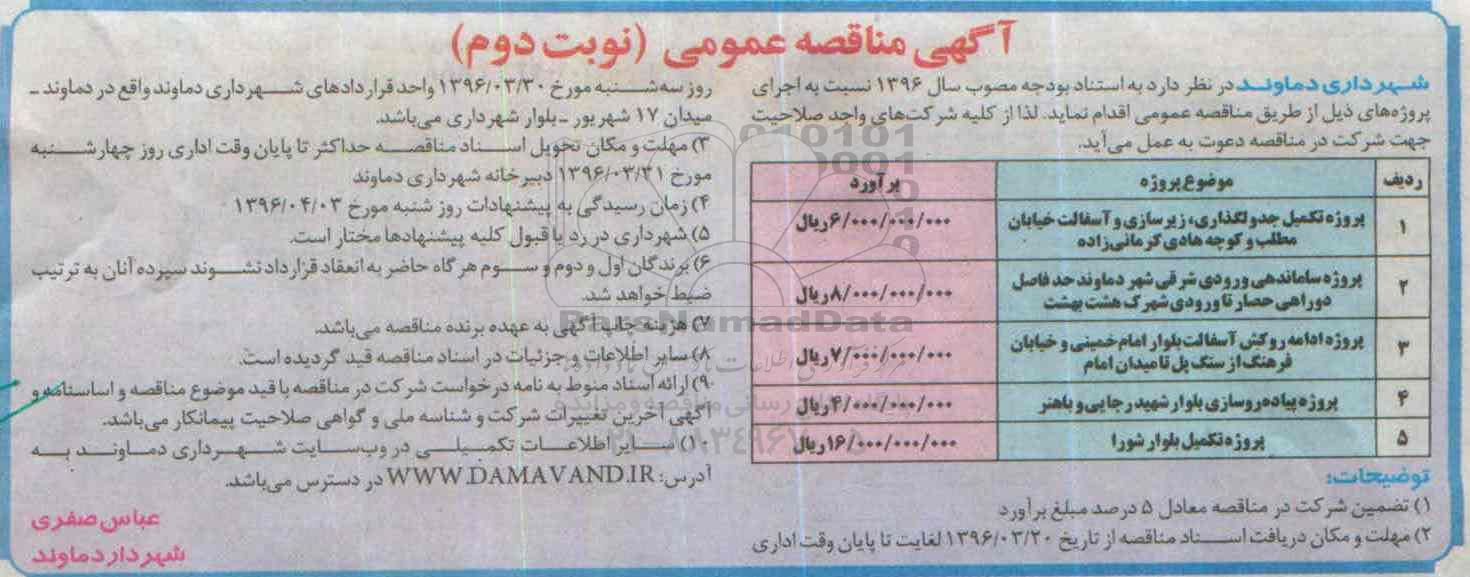 آگهی مناقصه عمومی (نوبت دوم)
شهرداری دماوند در نظر دارد به استناد بودجه مصوب سال ۱۳۹۶ نسبت به اجرای
پروژه‌های ذیل از طریق مناقصه عمومی اقدام نماید. لذا از کلیه شرکت‌های واجد صلاحیت
جهت شرکت در مناقصه دعوت به عمل می‌آید.
ردیف موضوع پروژه برآورد
۱ پروژه تکمیل جدولگذاری، زیرسازی و آسفالت خیابان ۶/۰۰۰/۰۰۰/۰۰۰ریال
مطلب و کوچه هادی کرمانی‌زاده
۲ پروژه ساماندهی ورودی شرقی شهر دماوند حد فاصل ۸/۰۰۰/۰۰۰/۰۰۰ریال
دوراهی حصار تا ورودی شهرک هشت بهشت
۳ پروژه ادامه روکش آسفالت بلوار امام خمینی و خیابان ۷/۰۰۰/۰۰۰/۰۰۰ریال
فرهنگ از سنگ پل تا میدان امام
۴ پروژه پیاده‌روسازی بلوار شهید رجایی و باهنر ۴/۰۰۰/۰۰۰/۰۰۰ریال
۵ پروژه تکمیل بلوار شورا ۱۶/۰۰۰/۰۰۰/۰۰۰ریال
توضیحات:
۱) تضمین شرکت در مناقصه معادل ۵ درصد مبلغ برآورد
۲) مهلت و مکان دریافت اسناد مناقصه از تاریخ ۱۳۹۶/۰۳/۲۰ لغایت تا پایان وقت اداری
روز سه‌شنبه مورخ ۱۳۹۶/۰۳/۳۰ واحد قراردادهای شهرداری دماوند واقع در دماوند ـ
میدان ۱۷ شهریور ـ بلوار شهرداری می‌باشد.
۳) مهلت و مکان تحویل اسناد مناقصه حداکثر تا پایان وقت اداری روز چهارشنبه
مورخ ۱۳۹۶/۰۳/۳۱ دبیرخانه شهرداری دماوند
۴) زمان رسیدگی به پیشنهادات روز شنبه مورخ ۱۳۹۶/۰۴/۰۳
۵) شهرداری در رد یا قبول کلیه پیشنهادها مختار است.
۶) برندگان اول و دوم و سوم هرگاه حاضر به انعقاد قرارداد نشوند سپرده آنان به ترتیب
ضبط خواهد شد.
۷) هزینه چاپ آگهی به عهده برنده مناقصه می‌باشد.
۸) سایر اطلاعات و جزئیات در اسناد مناقصه قید گردیده است.
۹) ارائه اسناد منوط به نامه درخواست شرکت در مناقصه با قید موضوع مناقصه و اساسنامه و
آگهی آخرین تغییرات شرکت و شناسه ملی و گواهی صلاحیت پیمانکار می‌باشد.
۱۰) سایر اطلاعات تکمیلی در وب‌سایت شهرداری دماوند به
آدرس: WWW.DAMAVAND.IR در دسترس می‌باشد.
عباس صفری
شهردار دماوند
ParsNamadData